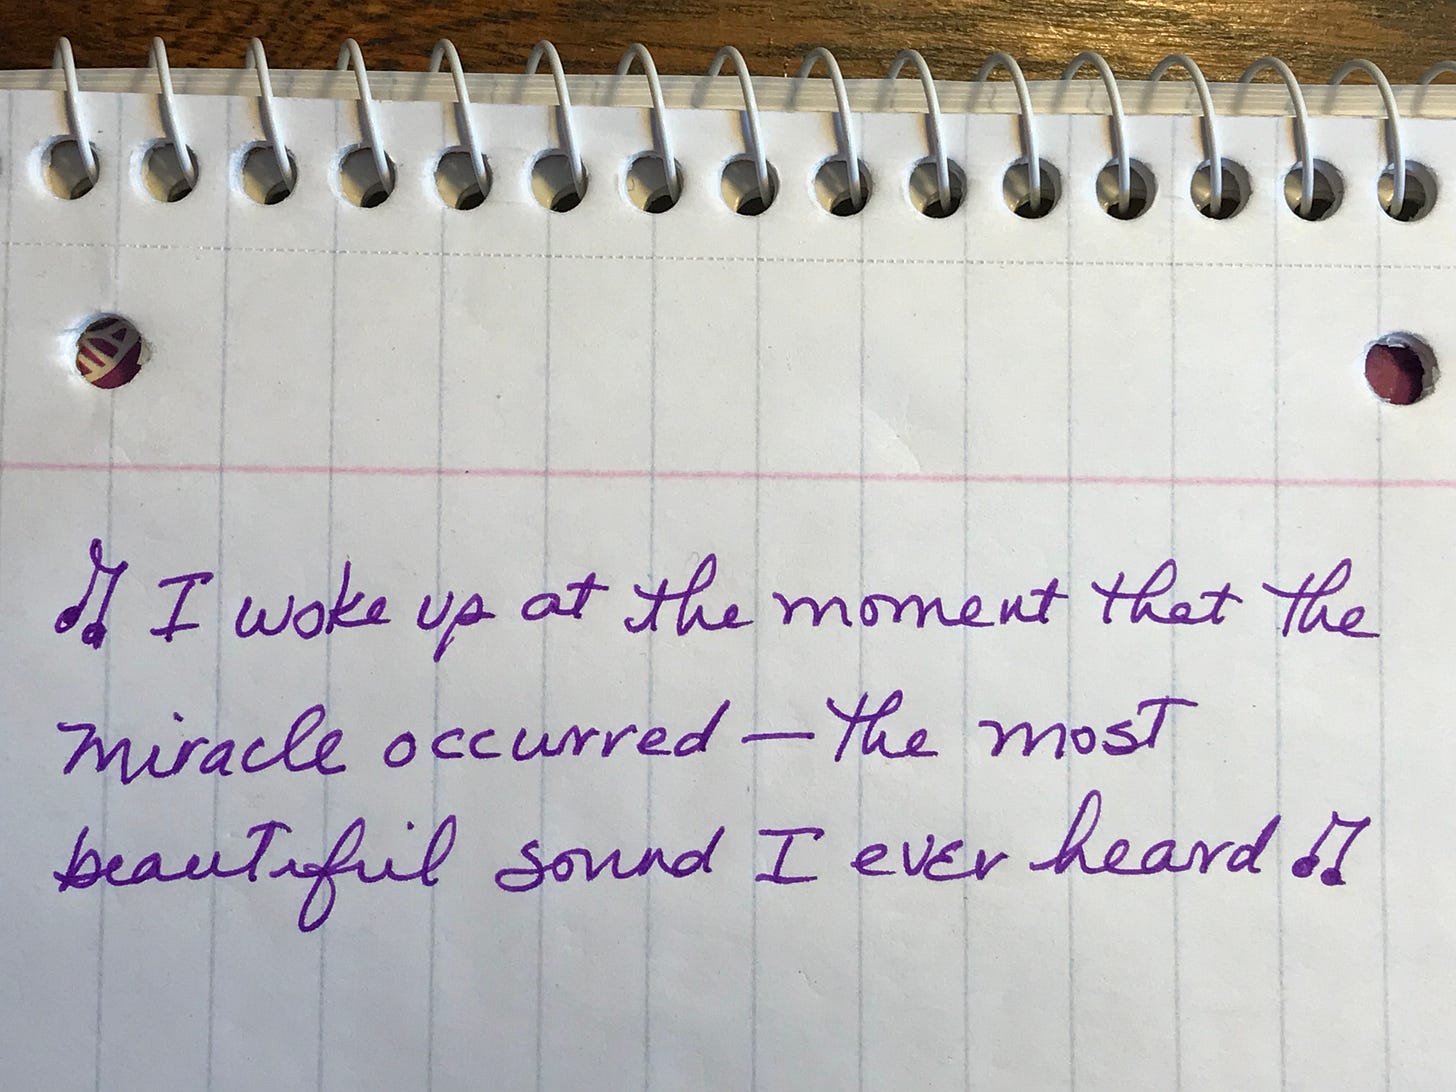 ♫ I woke up at the moment that the
miracle occurred — the most
beautiful sound I ever heard ♫